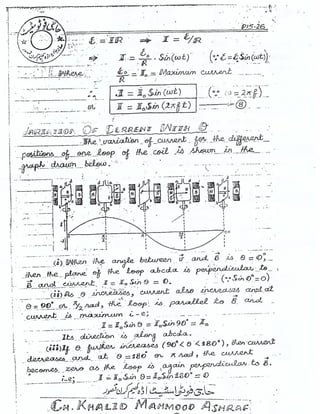 P15-26
ε = IR ⇒ I = ε/R
⇒ I = ε₀/R . Sin(ωt) (∵ ε = ε₀ Sin(ωt))
Where ε₀/R = I₀ = Maximum current
∴ I = I₀ Sin(ωt) (∵ ω = 2πf)
or I = I₀ Sin(2πft) — (8)
VARIATION OF CURRENT WITH θ
The variation of current for the different
positions of one loop of the coil is shown in the
graph drawn below.
(i) When the angle between v and B is θ = 0°,
then the plane of the loop abcda is perpendicular to
B and current I = I₀ Sin θ = 0. (∵ Sin 0° = 0)
(ii) As θ increases, current also increases and at
θ = 90° or π/2 rad, the loop is parallel to B and
current is maximum i-e;
I = I₀ Sin θ = I₀ Sin 90° = I₀
Its direction is along abcda.
(iii) If θ further increases (90° < θ < 180°), then current
decreases and at θ = 180° or π rad, the current
becomes zero as the loop is again perpendicular to B.
i-e; I = I₀ Sin θ = I₀ Sin 180° = 0
CH. KHALID MAHMOOD ASHRAF